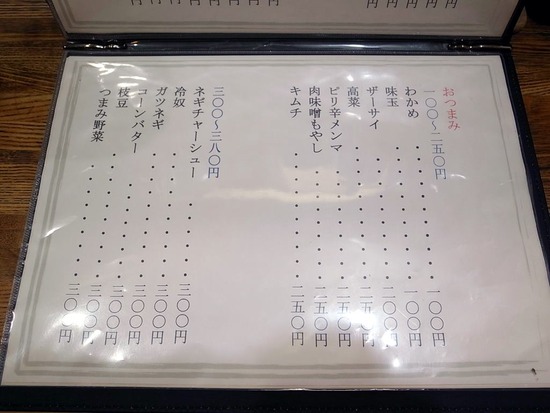 おつまみ
一〇〇〜二五〇円
わかめ・・・・・・・・・・一〇〇円
味玉・・・・・・・・・・一〇〇円
ザーサイ・・・・・・・・・・二〇〇円
高菜・・・・・・・・・・二五〇円
ピリ辛メンマ・・・・・・・・・・二五〇円
肉味噌もやし・・・・・・・・・二五〇円
キムチ・・・・・・・・・・二五〇円
三〇〇〜三八〇円
ネギチャーシュー・・・・・・三〇〇円
冷奴・・・・・・・・・・三〇〇円
ガツネギ・・・・・・・・・・三〇〇円
コーンバター・・・・・・・・三〇〇円
枝豆・・・・・・・・・・三〇〇円
つまみ野菜・・・・・・・・・三〇〇円